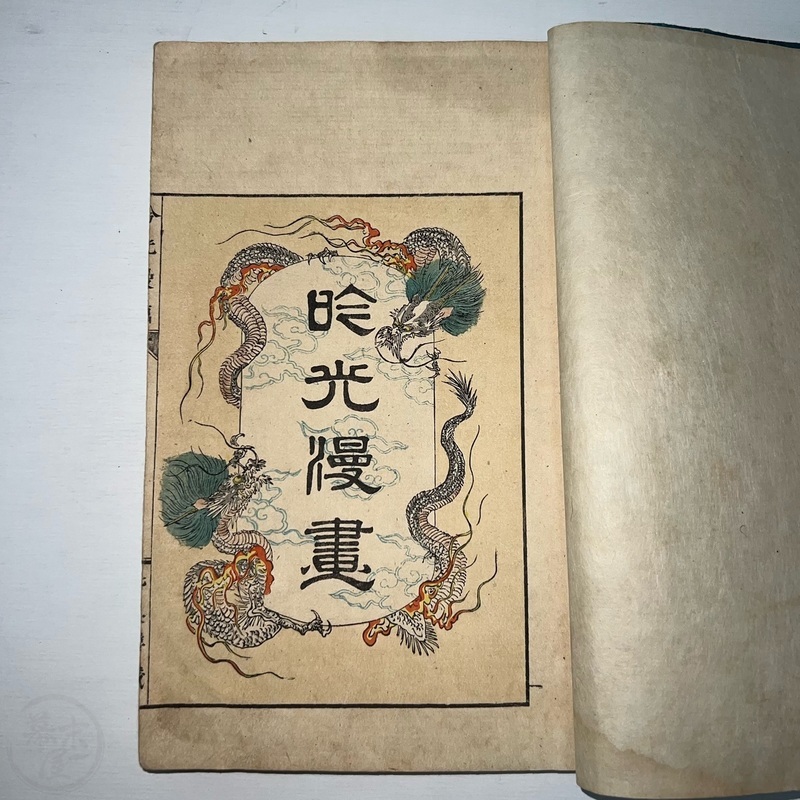 吟光漫畫